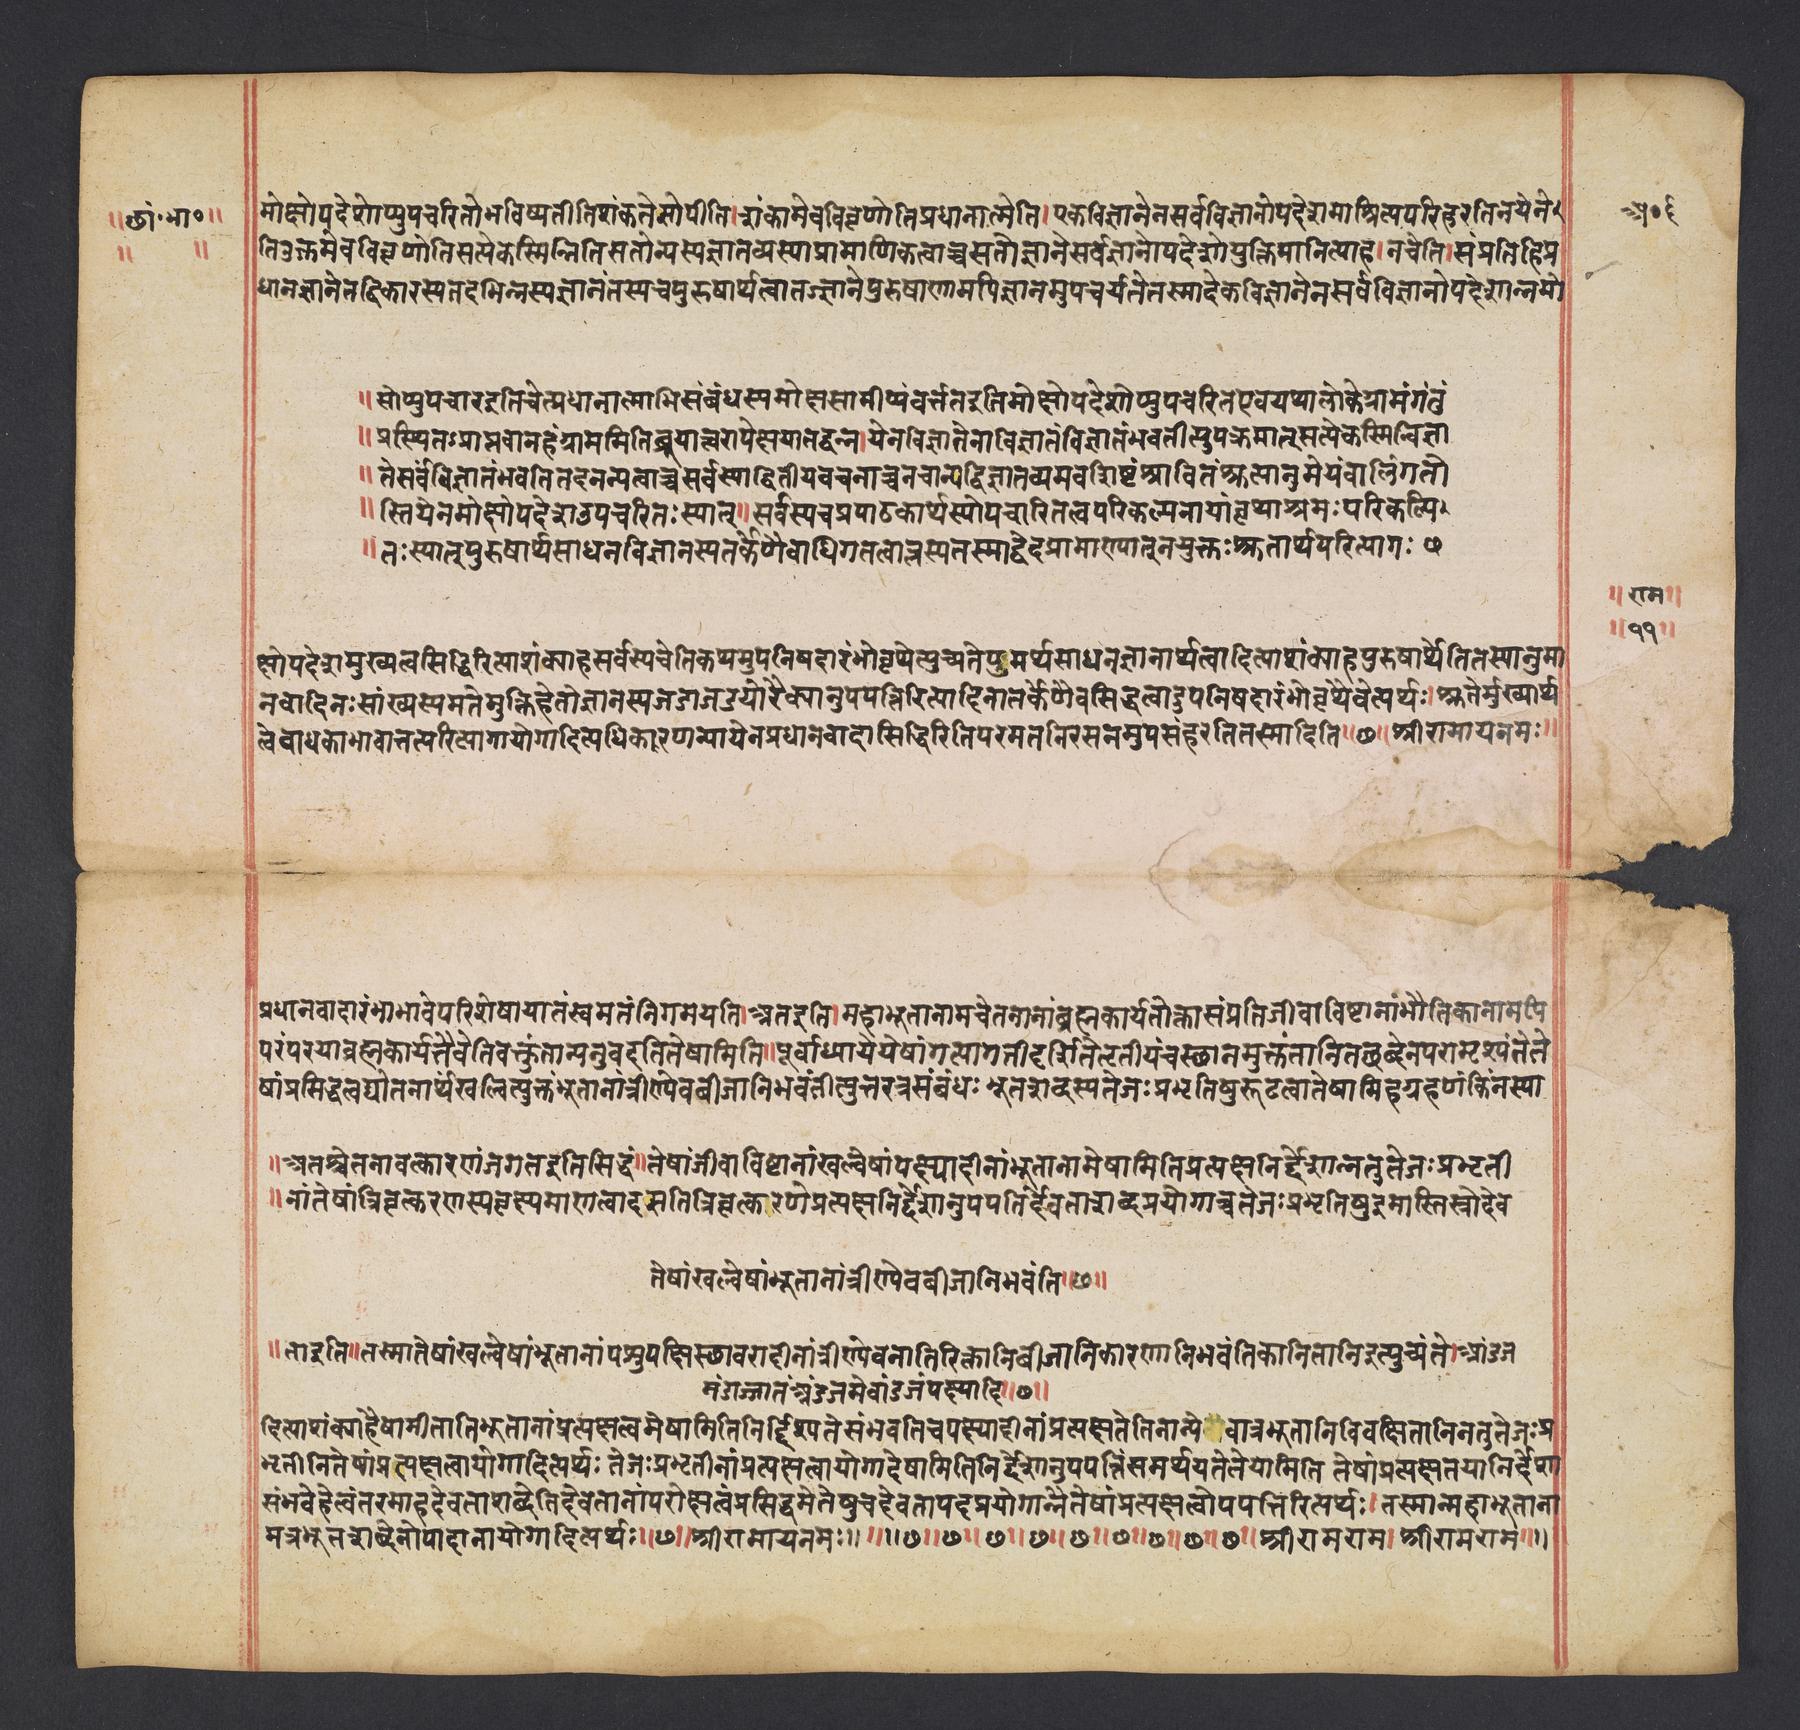 ॥छां॰भा०॥
॥ ॥
अ०६
मोक्षोपदेशोप्युपचरितोभविष्यतीतिशंकतेसोपीति।शंकामेवविवृणोतिप्रधानात्मेति।एकविज्ञानेनसर्वविज्ञानोपदेशमाश्रित्यपरिहरतिनयेने
तिउक्तमेवविवृणोतिसत्येकेस्मिन्नितिसतोन्यस्यज्ञातव्यस्याप्रामाणिकत्वाच्चसतोज्ञानेसर्वज्ञानोपदेशोयुक्तिमानित्याह।नचेति।संप्रतिहिप्र
धानज्ञानेतद्विकारस्यतदभिन्नस्यज्ञानंतस्यचपुरुषार्थत्वातज्ज्ञानेपुरुषाणामपिज्ञानमुपचर्यतेतस्मादेकविज्ञानेनसर्वविज्ञानोपदेशान्नमो
॥सोप्युपचारइतिचेत्प्रधानात्माभिसंबंधस्यमोक्षसामीप्यंवर्त्ततइतिमोक्षोपदेशोप्युपचरितएवयथालोकेग्रामंगंतुं
॥प्रस्थितःप्राप्तवानहंग्राममितिब्रूयात्त्वरापेक्षयातद्वन्न।येनविज्ञातेनाविज्ञातंविज्ञातंभवतीत्युपक्रमात्सत्येकस्मिन्विज्ञा
॥तेसर्वंविज्ञातंभवतितदनन्यत्वाच्चसर्वस्याद्वितीयवचनाच्चनचान्यद्विज्ञातव्यमवशिष्टंश्रावितंश्रुत्यानुमेयंवालिंगतो
॥स्तियेनमोक्षोपदेशउपचरितःस्यात्॥सर्वस्यचप्रपाठकार्थस्योपचारितत्वपरिकल्पनायांवृथाश्रमःपरिकल्पि
॥तःस्यात्पुरुषार्थसाधनविज्ञानस्यतर्केणैवाधिगतत्वात्तस्यतस्माद्वेदप्रामाण्यात्नयुक्तःश्रुतार्थपरित्यागः ७
॥राम॥
॥११॥
क्षोपदेशमुख्यत्वसिद्धिरित्याशंक्याहसर्वस्यचेतिकथमुपनिषदारंभोवृथेत्युच्यतेपुमर्थसाधनज्ञानार्थत्वादित्याशंक्याहपुरुषार्थेतितस्यानुमा
नवादिनःसांख्यस्यमतेमुक्तिहेतोर्ज्ञानस्यजडाजडयोरैक्यानुपपत्तिरित्यादिनातर्केणैवसिद्धत्वादुपनिषदारंभोवृथैवेत्यर्थः।श्रुतेर्मुख्यार्थ
त्वेबाधकाभावात्तत्परित्यागायोगादित्यधिकारणन्यायेनप्रधानवादासिद्धिरितिपरमतनिरसनमुपसंहरतितस्मादिति॥७॥श्रीरामायनमः॥
प्रधानवादारंभाभावेपरिशेषायातंस्वमतंनिगमयति।अतइति।महाभूतानामचेतनानांब्रह्मकार्यतोक्तासंप्रतिजीवाविष्टानांभौतिकानामपि
परंपरयाब्रह्मकार्यतैवेतिवक्तुंतान्यनुवदतितेषामिति॥पूर्वाध्यायेयेषांगत्यागतीदर्शितेतृतीयंचस्छानमुक्तंतानितछब्देनपरामृश्यंतेते
षांप्रसिद्धत्वद्योतनार्थंखल्वित्युक्तंभूतानांत्रीण्येवबीजानिभवंतीत्युत्तरत्रसंबंधः भूतशब्दस्यतेजःप्रभृतिषुरूढत्वात्तेषामिहग्रहणंकिंनस्या
॥अतश्चेतनावत्कारणंजगतइतिसिद्धं॥तेषांजीवाविष्टानांखल्वेषांपक्ष्यादीनांभूतानामेषामितिप्रत्यक्षनिर्द्देशान्नतुतेजःप्रभृती
॥नांतेषांत्रिवृत्करणस्यवक्ष्यमाणत्वादसतित्रिवृत्करणेप्रत्यक्षनिर्द्देशानुपपतिर्देवताशब्दप्रयोगाच्चतेजःप्रभृतिषुइमास्तिस्त्रोदेव
तेषांखल्वेषांभूतानांत्रीण्येवबीजानिभवंति॥७॥
॥ताइति॥तस्मात्तेषांखल्वेषांभूतानांपशुपक्षिस्छावरादीनांत्रीण्येवनातिरिक्तानिबीजानिकारणानिभवंतिकानितानिइत्युच्यंते।आंडज
मंडाज्जातंअंडजमेवांडजंपक्ष्यादि॥७॥
दित्याशंक्याहैषामीतातिभूतानांप्रत्यक्षत्वमेषामितिनिर्द्दिश्यतेसंभवतिचपक्ष्यादीनांप्रत्यक्षतेतितान्येवात्रभूतानिविवक्षितानिनतुतेजःप्र
भृतीनितेषांप्रत्यक्षत्वायोगादित्यर्थः तेजःप्रभृतीनांप्रत्यक्षत्वायोगादेषामितिनिर्द्देशानुपपत्तिंसमर्थयतेतेषामिति तेषांप्रत्यक्षतयानिर्देशा
संभवेहेत्वंतरमाहदेवताशब्देतिदेवतानांपरोक्षत्वंप्रसिद्धमेतेषुचदेवतापदप्रयोगान्नैतेषांप्रत्यक्षत्वोपपत्तिरित्यर्थः।तस्मान्महाभूताना
मत्रभूतशब्देनोपादानायोगादित्यर्थः॥७॥श्रीरामायनमः॥ ॥॥७॥७॥७॥७॥७॥७॥७॥७॥७॥श्रीरामराम।श्रीरामराम॥॥